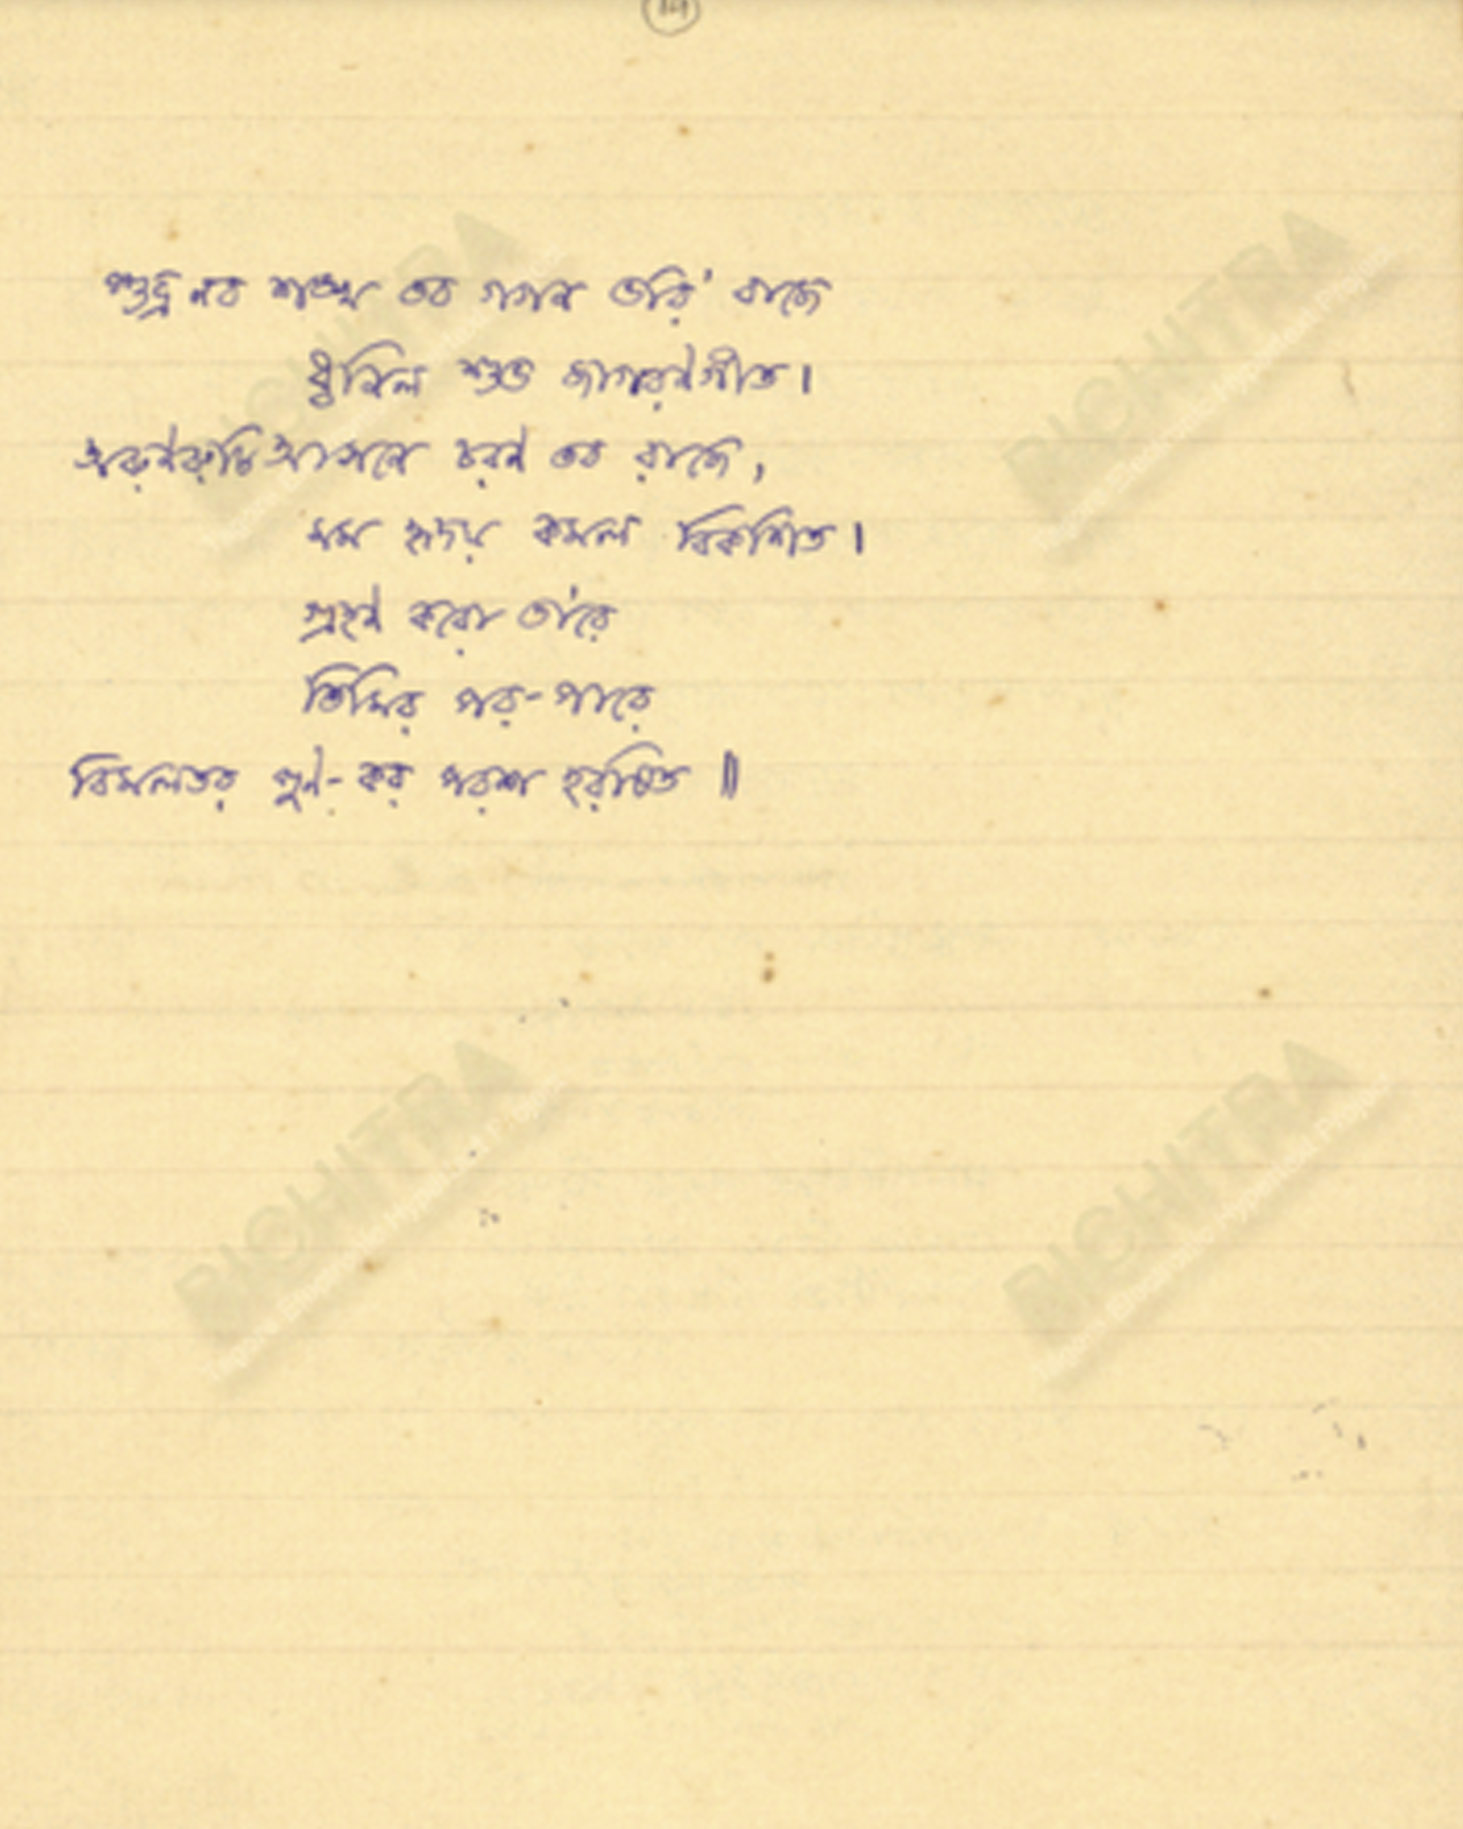 শুভ্র নব শঙ্খ তব গগন ভরি' বাজে
ধ্বনিল শুভ জাগরণগীত।
অরুণরুচি আসনে চরণ তব রাজে,
মম হৃদয় কমল বিকশিত।
গ্রহণ করো তা'রে
তিমির পর-পারে
বিমলতর পুণ্য-কর পরশ হরষিত॥
BICHITRA
BICHITRA
BICHITRA
BICHITRA